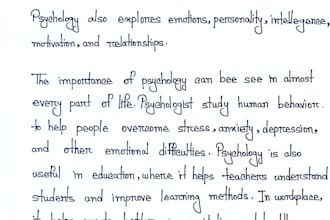 Psychology also explores emotions, personality, intellegence,
motivation, and relationships.
The importance of psychology can bee see in almost
every part of life. Psychologist study human behavior.
to help people overcome stress, anxiety, depression,
and other emotional difficulties. Psychology is also
useful in education, where it helps teachers understand
students and improve learning methods. In workplace,